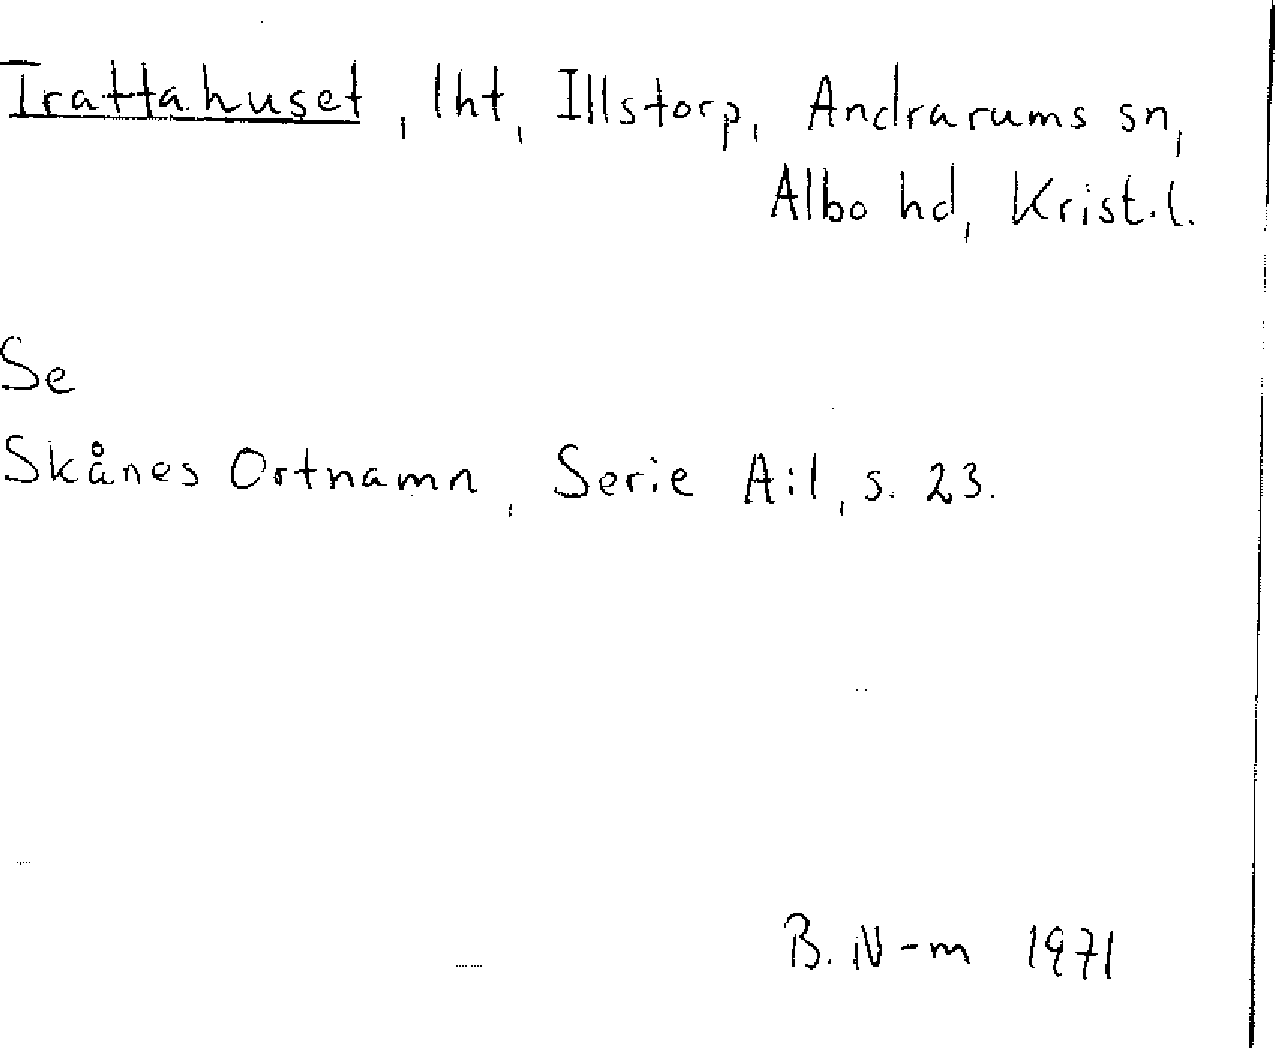 Trattahuset, lht, Illstorp, Andrarums sn,
Albo hd, Krist.l.
Se
Skånes Ortnamn, Serie A:1, s. 23.
B. N-m 1971